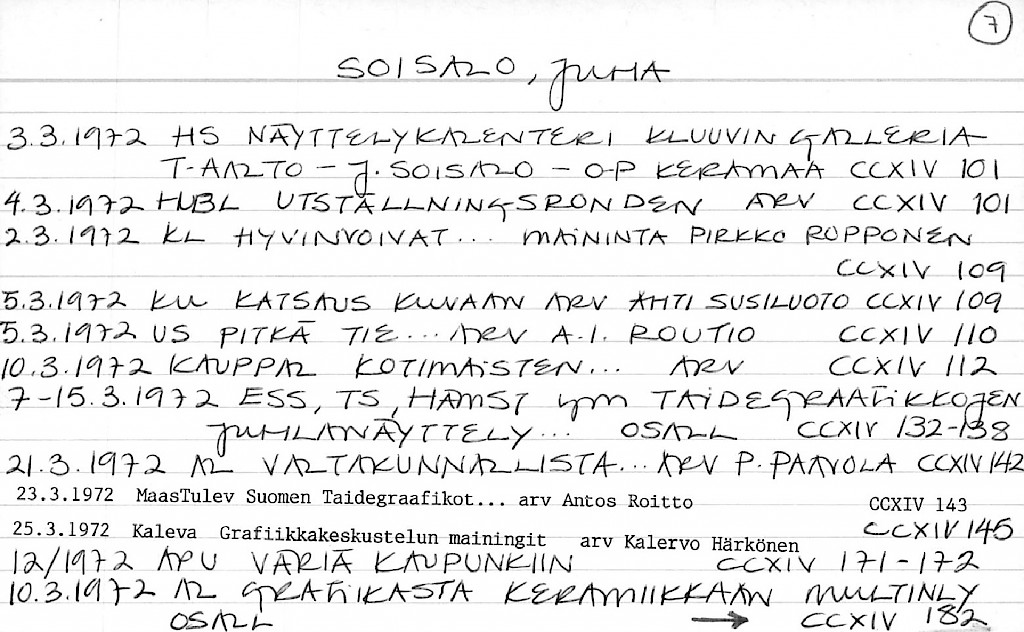 7
SOISALO, JUHA
3.3.1972 HS NÄYTTELYKALENTERI KLUUVIN GALLERIA
T-AALTO - J. SOISALO - O-P KERAMAA CCXIV 101
4.3.1972 HUBL UTSTÄLLNINGSRONDEN ARV CCXIV 101
2.3.1972 KL HYVINVOIVAT... MAININTA PIRKKO ROPPONEN
CCXIV 109
5.3.1972 KU KATSAUS KUVAAN ARV AHTI SUSILUOTO CCXIV 109
5.3.1972 US PITKÄ TIE... ARV A.I. ROUTIO CCXIV 110
10.3.1972 KAUPPAL KOTIMAISTEN... ARV CCXIV 112
7-15.3.1972 ESS, TS, HÄMST ym TAIDEGRAAFIKKOJEN
JUHLANÄYTTELY... OSALL CCXIV 132-138
21.3.1972 AL VALTAKUNNALLISTA... ARV P. PAAVOLA CCXIV 142
23.3.1972 MaasTulev Suomen Taidegraafikot... arv Antos Roitto CCXIV 143
25.3.1972 Kaleva Grafiikkakeskustelun mainingit arv Kalervo Härkönen CCXIV 145
12/1972 APU VÄRIÄ KAUPUNKIIN CCXIV 171-172
10.3.1972 AL GRAFIIKASTA KERAMIIKKAAN MULTINLY
OSALL → CCXIV 182